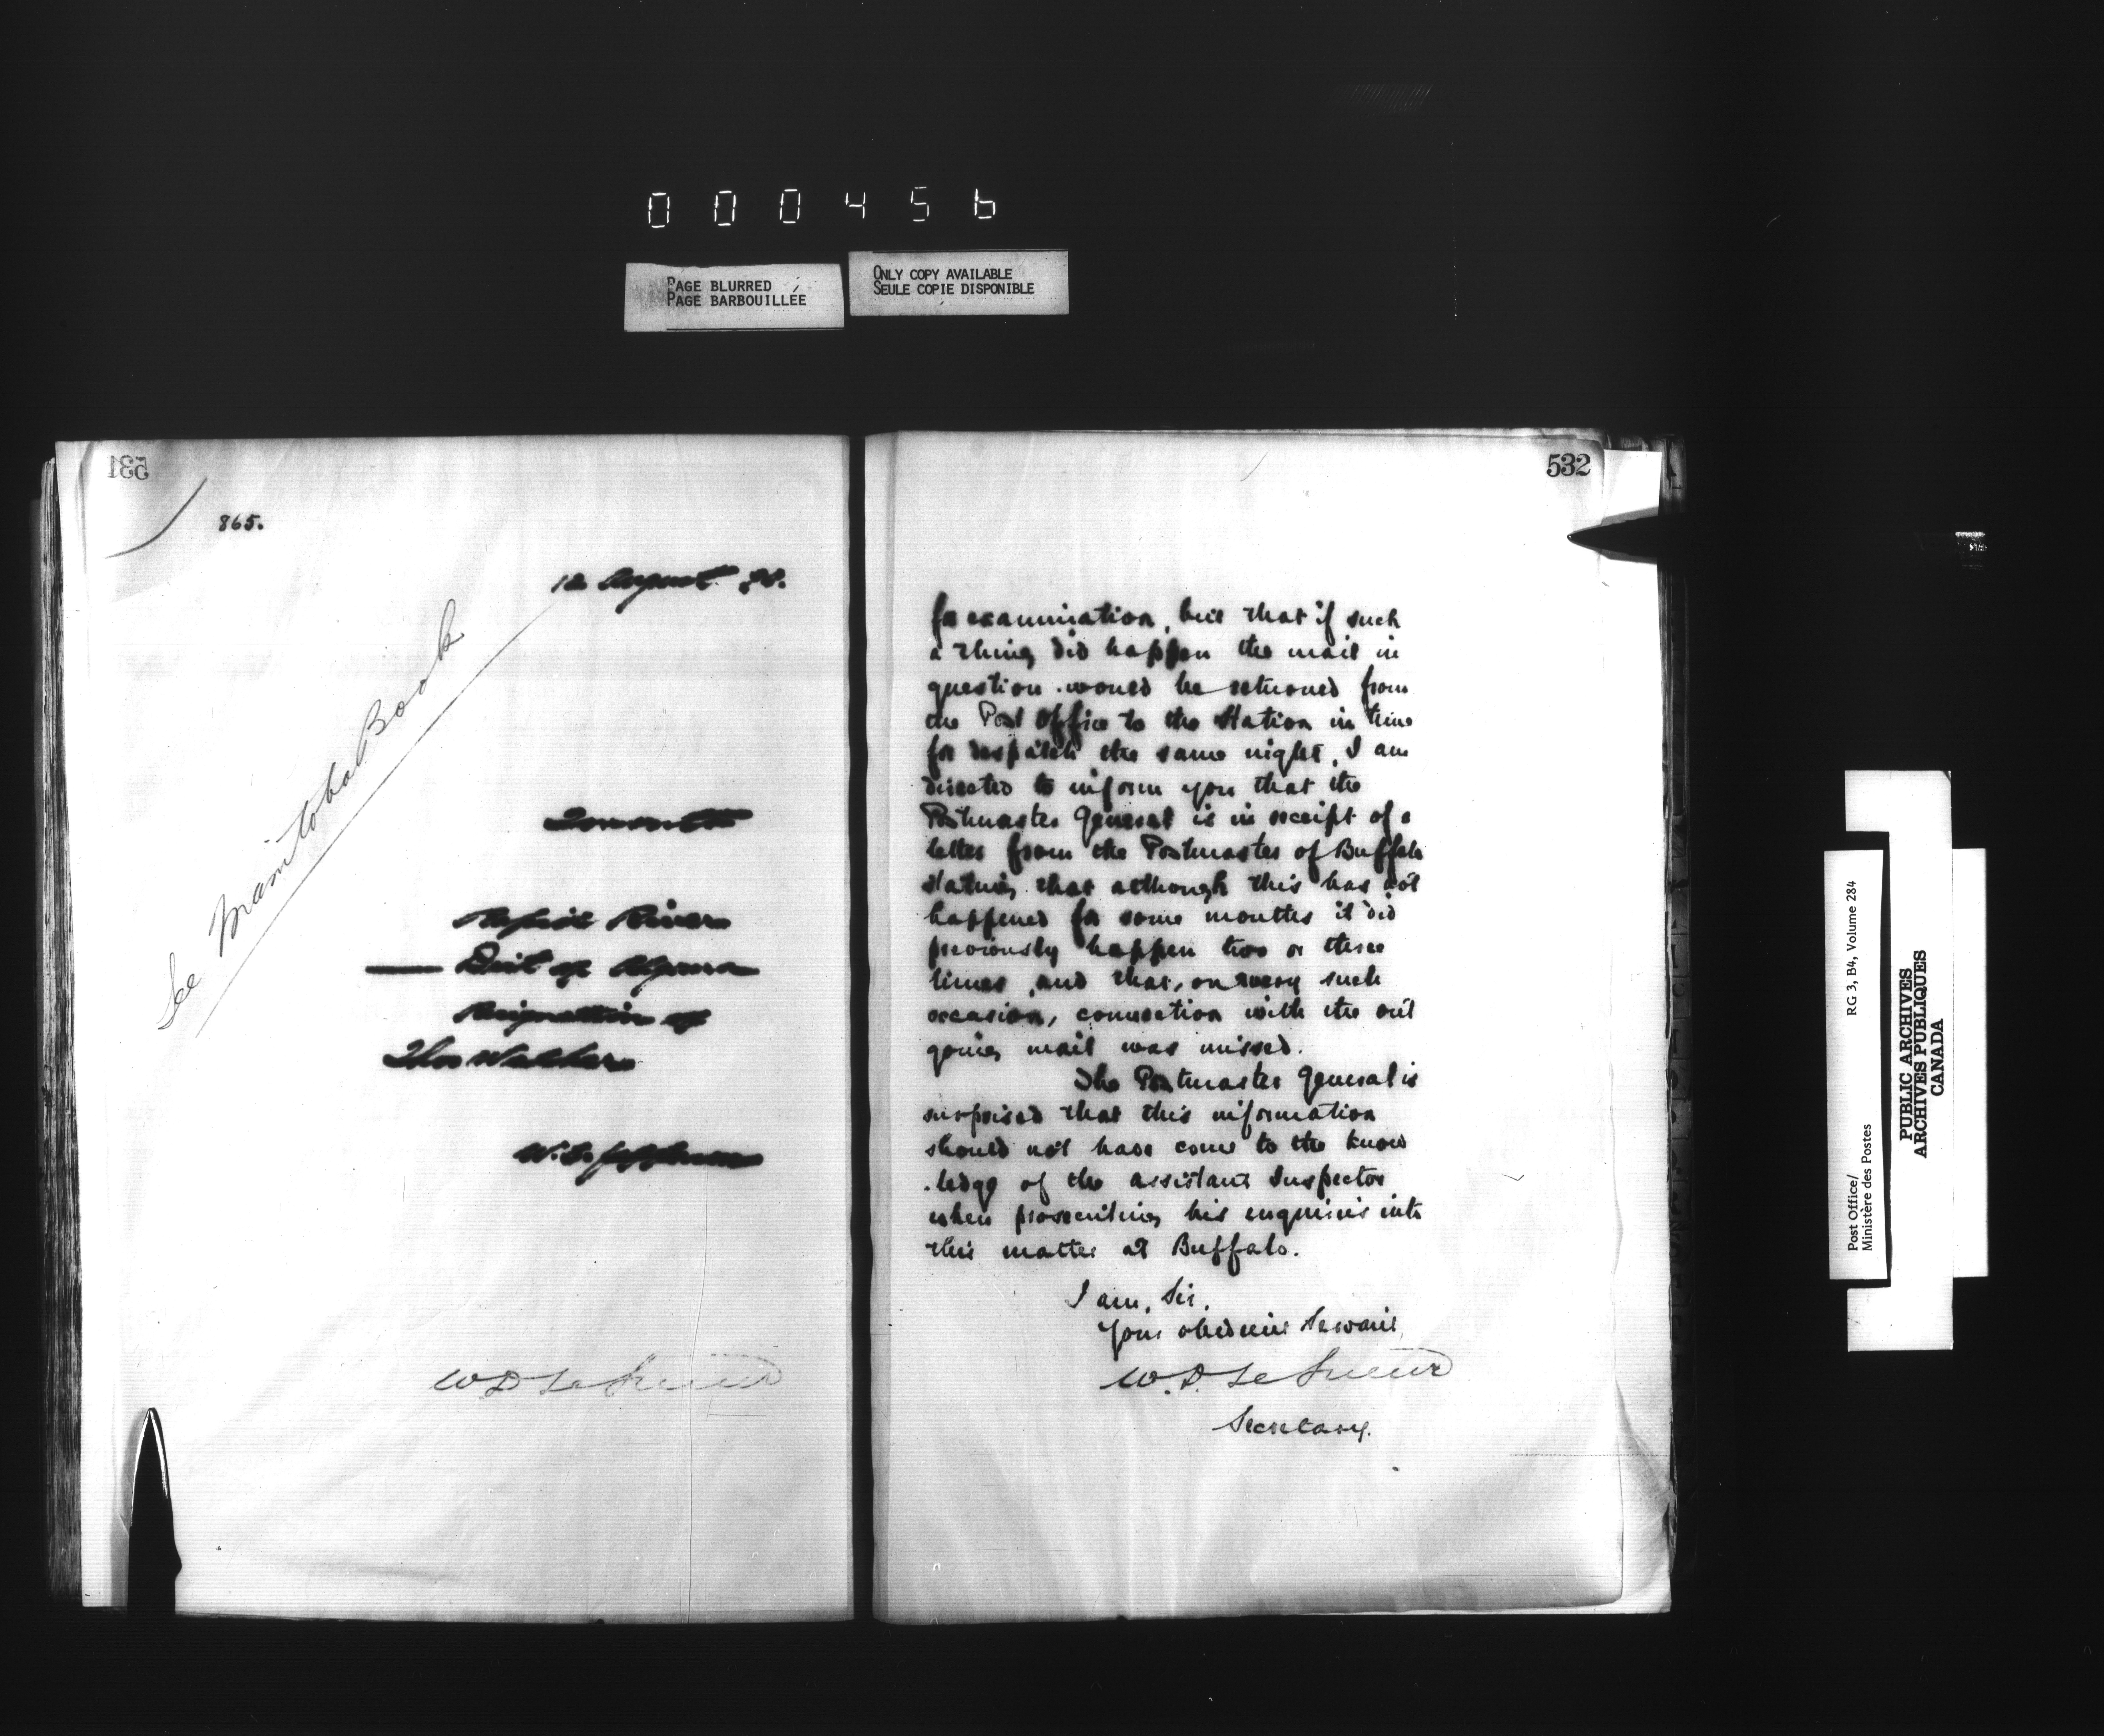 000456
PAGE BLURRED
PAGE BARBOUILLÉE
ONLY COPY AVAILABLE
SEULE COPIE DISPONIBLE
531
865.
12 August
See Manitoba Book
Toronto
Rapid River
Dist of Algoma
Resignation of
Thos Walker
W. D. Le Sueur
532
for examination, but that if such
a thing did happen the mail in
question would be returned from
the Post Office to the Station in time
for despatch the same night, I am
directed to inform you that the
Postmaster General is in receipt of a
letter from the Postmaster of Buffalo
stating that although this has not
happened for some months it did
previously happen two or three
times, and that, on every such
occasion, connection with the out
going mail was missed.
The Postmaster General is
surprised that this information
should not have come to the know
.ledge of the assistant Inspector
when prosecuting his enquiries into
this matter at Buffalo.
I am, Sir,
Your obedient Servant,
W. D. Le Sueur
Secretary.
Post Office/
Ministère des Postes
RG 3, B4, Volume 284
PUBLIC ARCHIVES
ARCHIVES PUBLIQUES
CANADA